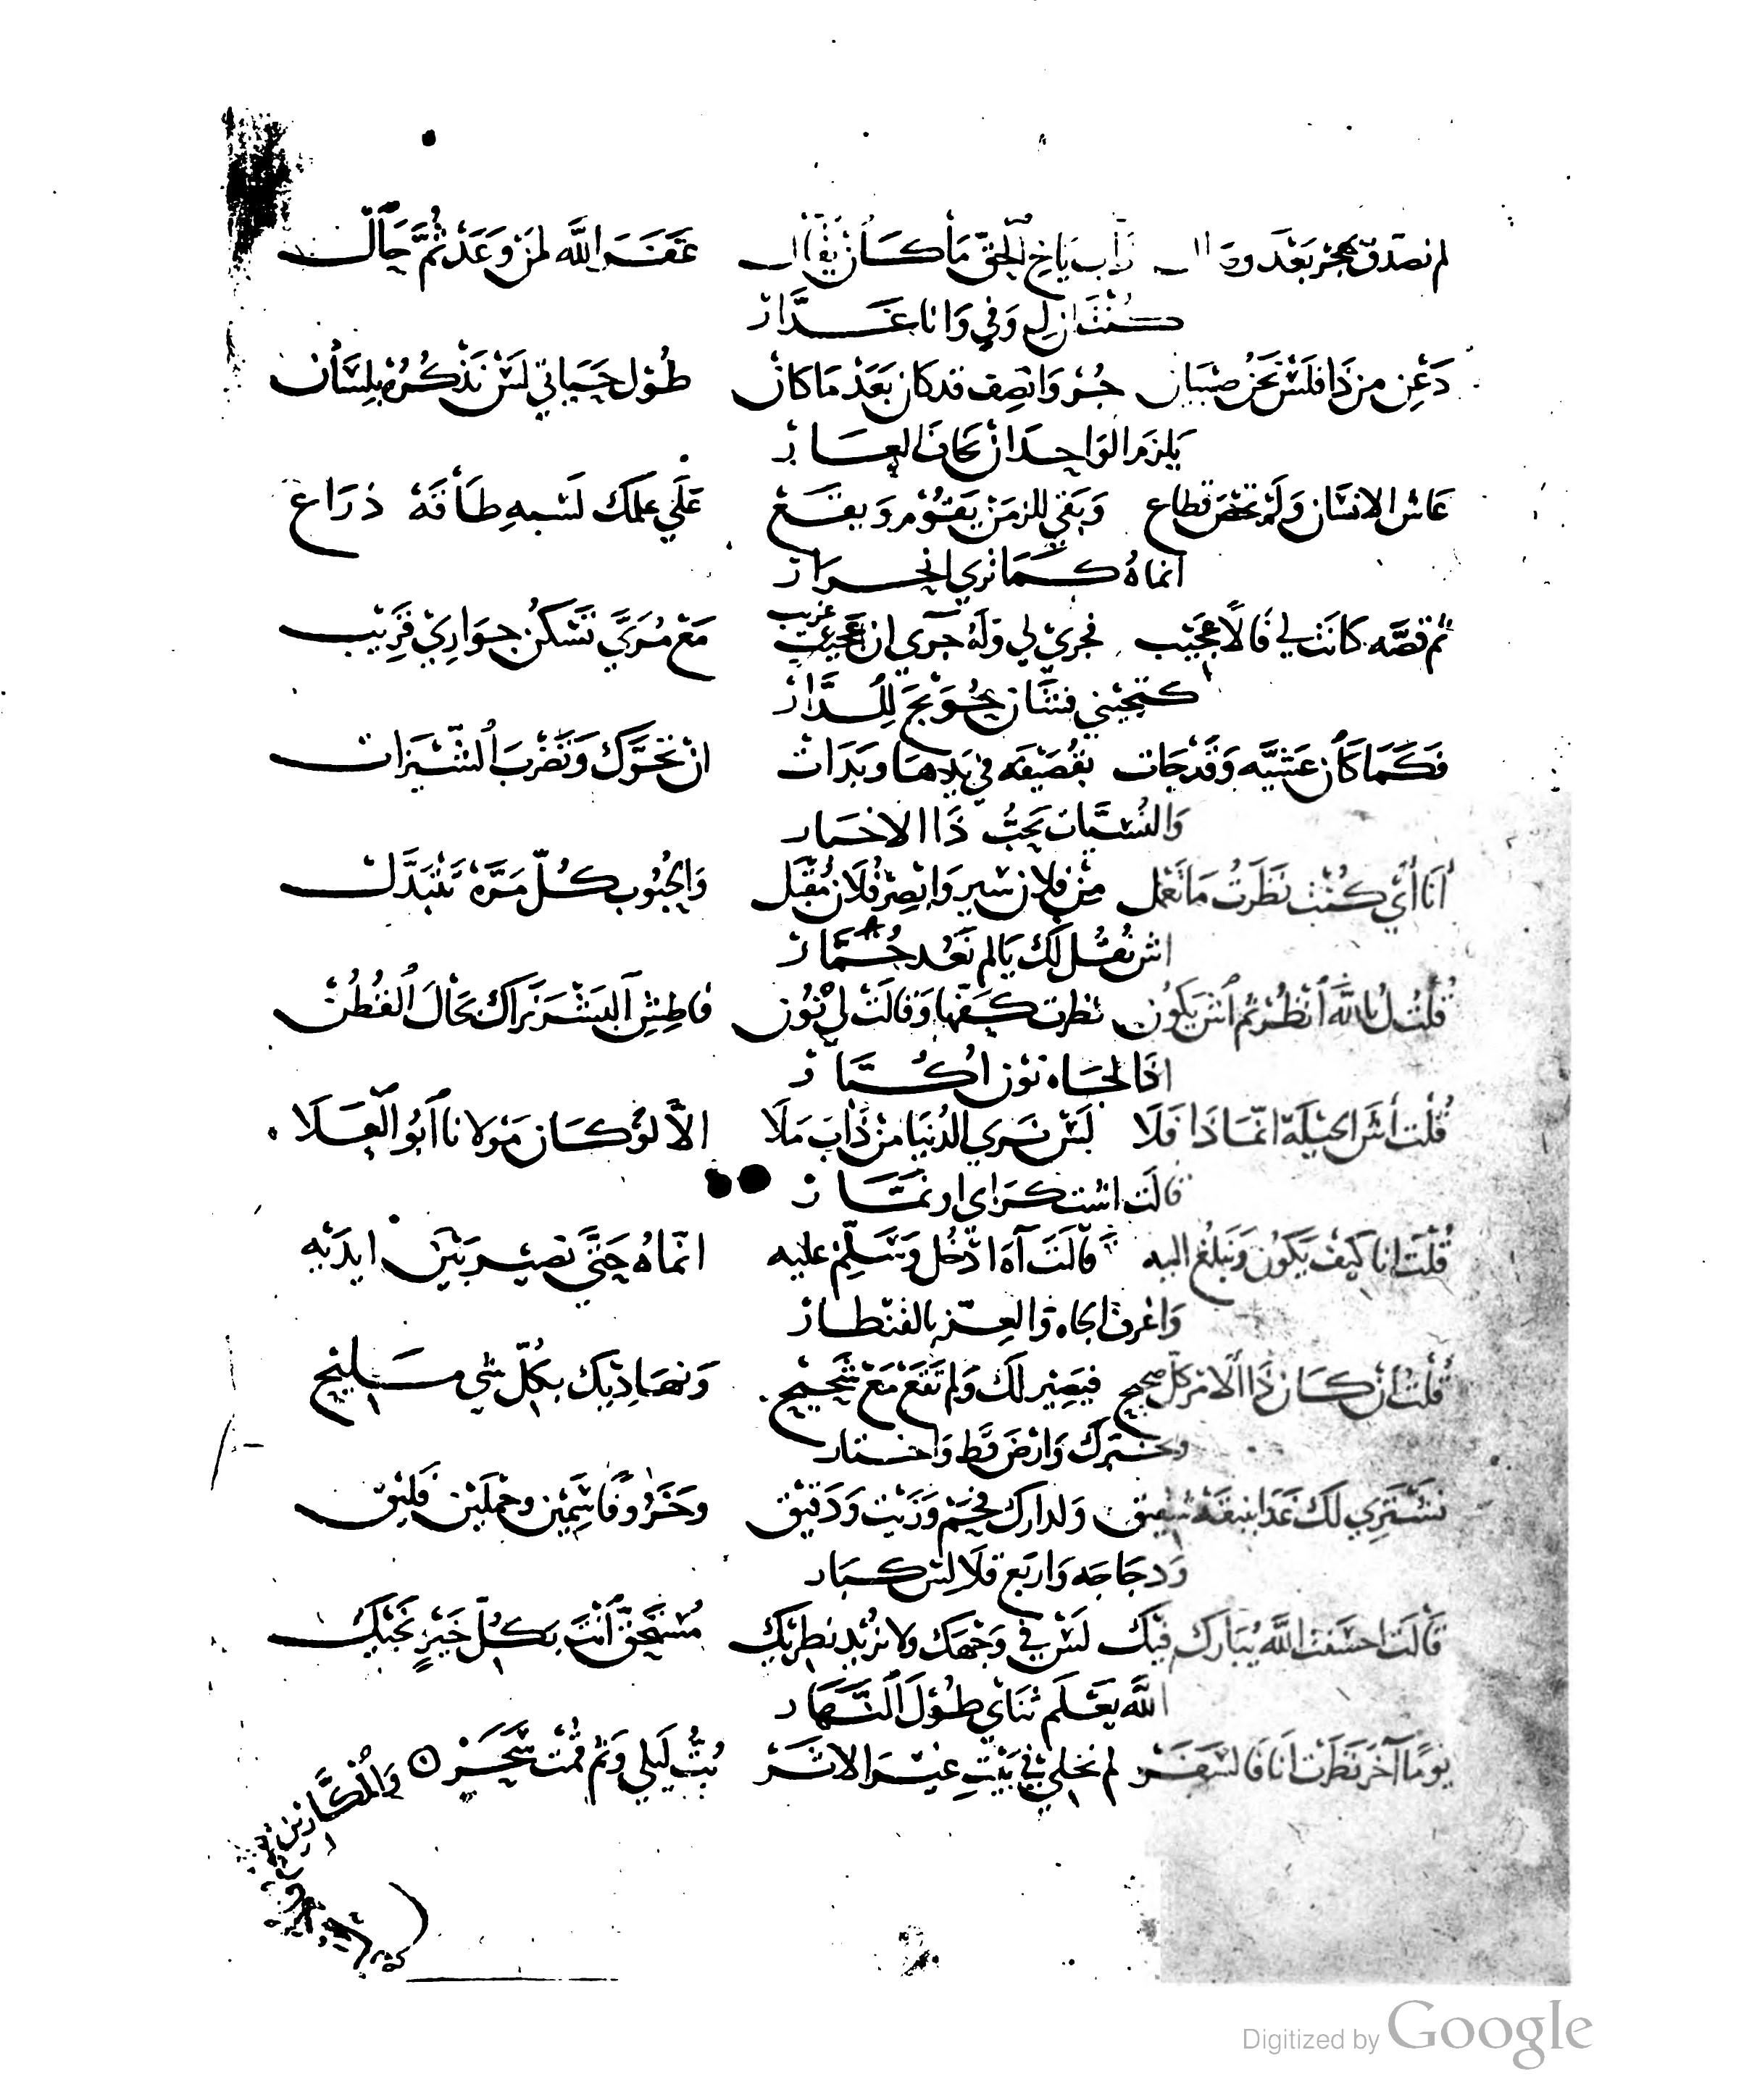 لم نصدق بهجر بعد وصال ذاب ياخي الحق ما كان يقال عقر الله لمن وعد ثم حال
كنت ان لي وفي وانا غدار
دعن من ذا فلس نحن صبيان جر وانصف قد كان بعد ما كان طول حياتي لس نذكره بلسان
يلزم الواحد ان يخاف العار
عاش الانسان ولم تخص قطاع وبقي للزمن يقوم ويقع علي علمك لسبه طاقة ذراع
انماه كما تري الخرار
ثم قصه كانت لي قالا عجيب فجري لي وله جري ان غريب مع مري تسكن جواري قريب
كتجيني فتان حويج للدار
فكما كان عشيه وقد جات بقصيفه في يدها وبدات ان تحرك وتضرب الشيرات
والنسيات يحب ذا الاخبار
انا أي كنت نظرت ما تعمل من فلان سير وابصر فلان مقبل والحبوب كل مرة تتبدل
اش نقل لك يالم نعد حمار
قلت ل بالله انظر ثم اش يكون نظرت كفها وقالت لي نون فاطش البشر نراك بحال القطن
اذا الجاه نون اكتار
قلت أش الحيلة انما ذا فلا لس نري الدنيا من ذاب ملا الا لو كان مولانا ابو العلا
قالت اشت كراي او نمار
قلت انا كيف يكون ونبلغ اليه قالت آه ادخل وسلم عليه انماه حتي تصير بين ايديه
واغرف الجاه والعز بالقنطار
قلت ان كان ذا الامر كل صحيح فيصير لك ولم تقع مع شحيح ونهاديك بكل شي مليح
ونخيرك وارض قط واختار
نشتري لك غدا بنيقة شقيق ولدارك فحم وزيت ودقيق وحزر وقاشمين وحملين فليق
ودجاجه واربع فلالس كبار
قالت احسنت الله يبارك فيك لس في وجهك ولا نريد نطريك مستحق انت بكل خير نحبك
الله يعلم ثناي طول النهار
يوما آخر نظرت انا فالسفر لم نخلي في بيت غير الاثر بت ليلي وثم قمت سحر
والمكارين
Digitized by Google